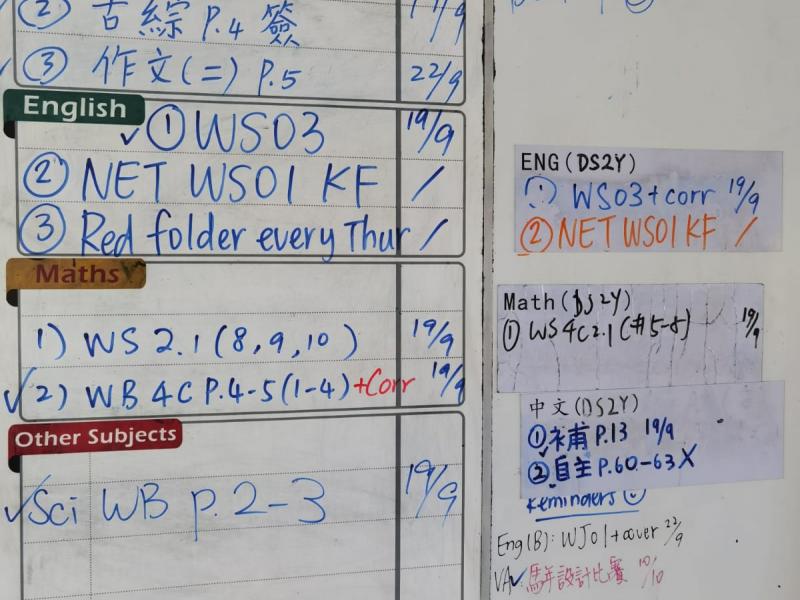 ② 古綜 P.4 簽
③ 作文(二) P.5 22/9
English
✓ ① WS03 19/9
② NET WS01 KF /
③ Red folder every Thur /
Maths
1) WS 2.1 (8, 9, 10) 19/9
✓ 2) WB 4C P.4-5 (1-4) +Corr 19/9
Other Subjects
✓ Sci WB p. 2-3 19/9
ENG (DS2Y)
① WS03 + corr 19/9
② NET WS01 KF /
Math (DS2Y)
① WS 4C2.1 (#5-8) 19/9
中文 (DS2Y)
① 補 P.13 19/9
② 自主 P.60-63 X
Reminders
Eng (B): WJ01 + cover 22/9
VA ✓: 馬年設計比賽 10/10